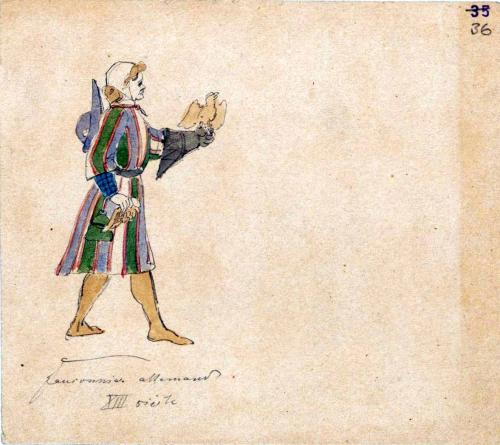 35
36
Fauconnier allemand
XIII siècle